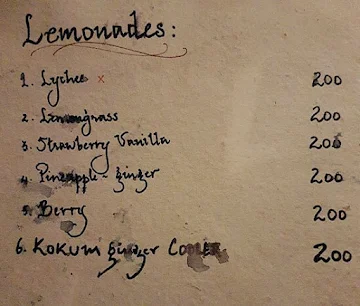 Lemonades:
1. Lychee x 200
2. Lemongrass 200
3. Strawberry Vanilla 200
4. Pineapple - ginger 200
5. Berry 200
6. KOKUM ginger Cooler 200